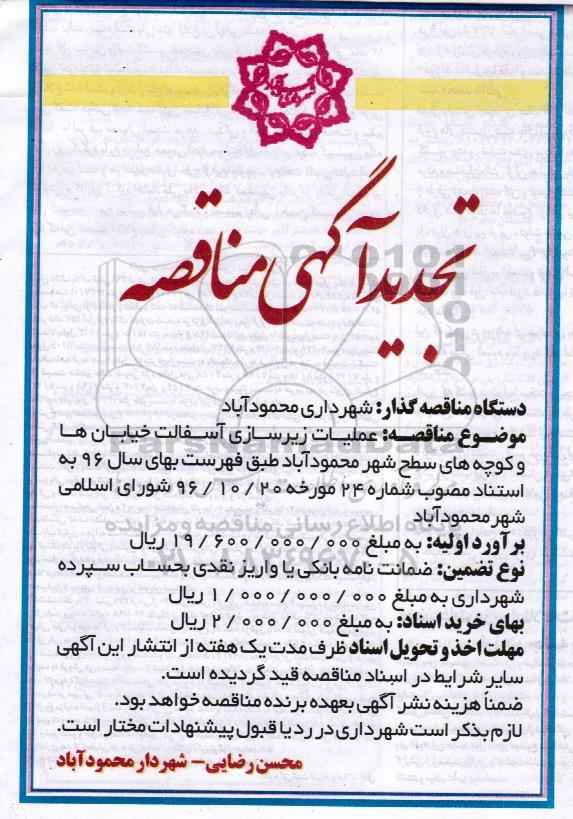 تجدید آگهی مناقصه
دستگاه مناقصه گذار: شهرداری محمودآباد
موضوع مناقصه: عملیات زیرسازی آسفالت خیابان ها
و کوچه های سطح شهر محمودآباد طبق فهرست بهای سال ۹۶ به
استناد مصوب شماره ۲۴ مورخه ۲۰ / ۱۰ / ۹۶ شورای اسلامی
شهر محمودآباد
برآورد اولیه: به مبلغ ۰۰۰ / ۰۰۰ / ۶۰۰ / ۱۹ ریال
نوع تضمین: ضمانت نامه بانکی یا واریز نقدی بحساب سپرده
شهرداری به مبلغ ۰۰۰ / ۰۰۰ / ۰۰۰ / ۱ ریال
بهای خرید اسناد: به مبلغ ۰۰۰ / ۰۰۰ / ۲ ریال
مهلت اخذ و تحویل اسناد ظرف مدت یک هفته از انتشار این آگهی
سایر شرایط در اسناد مناقصه قید گردیده است.
ضمناً هزینه نشر آگهی بعهده برنده مناقصه خواهد بود.
لازم بذکر است شهرداری در رد یا قبول پیشنهادات مختار است.
محسن رضایی - شهردار محمودآباد